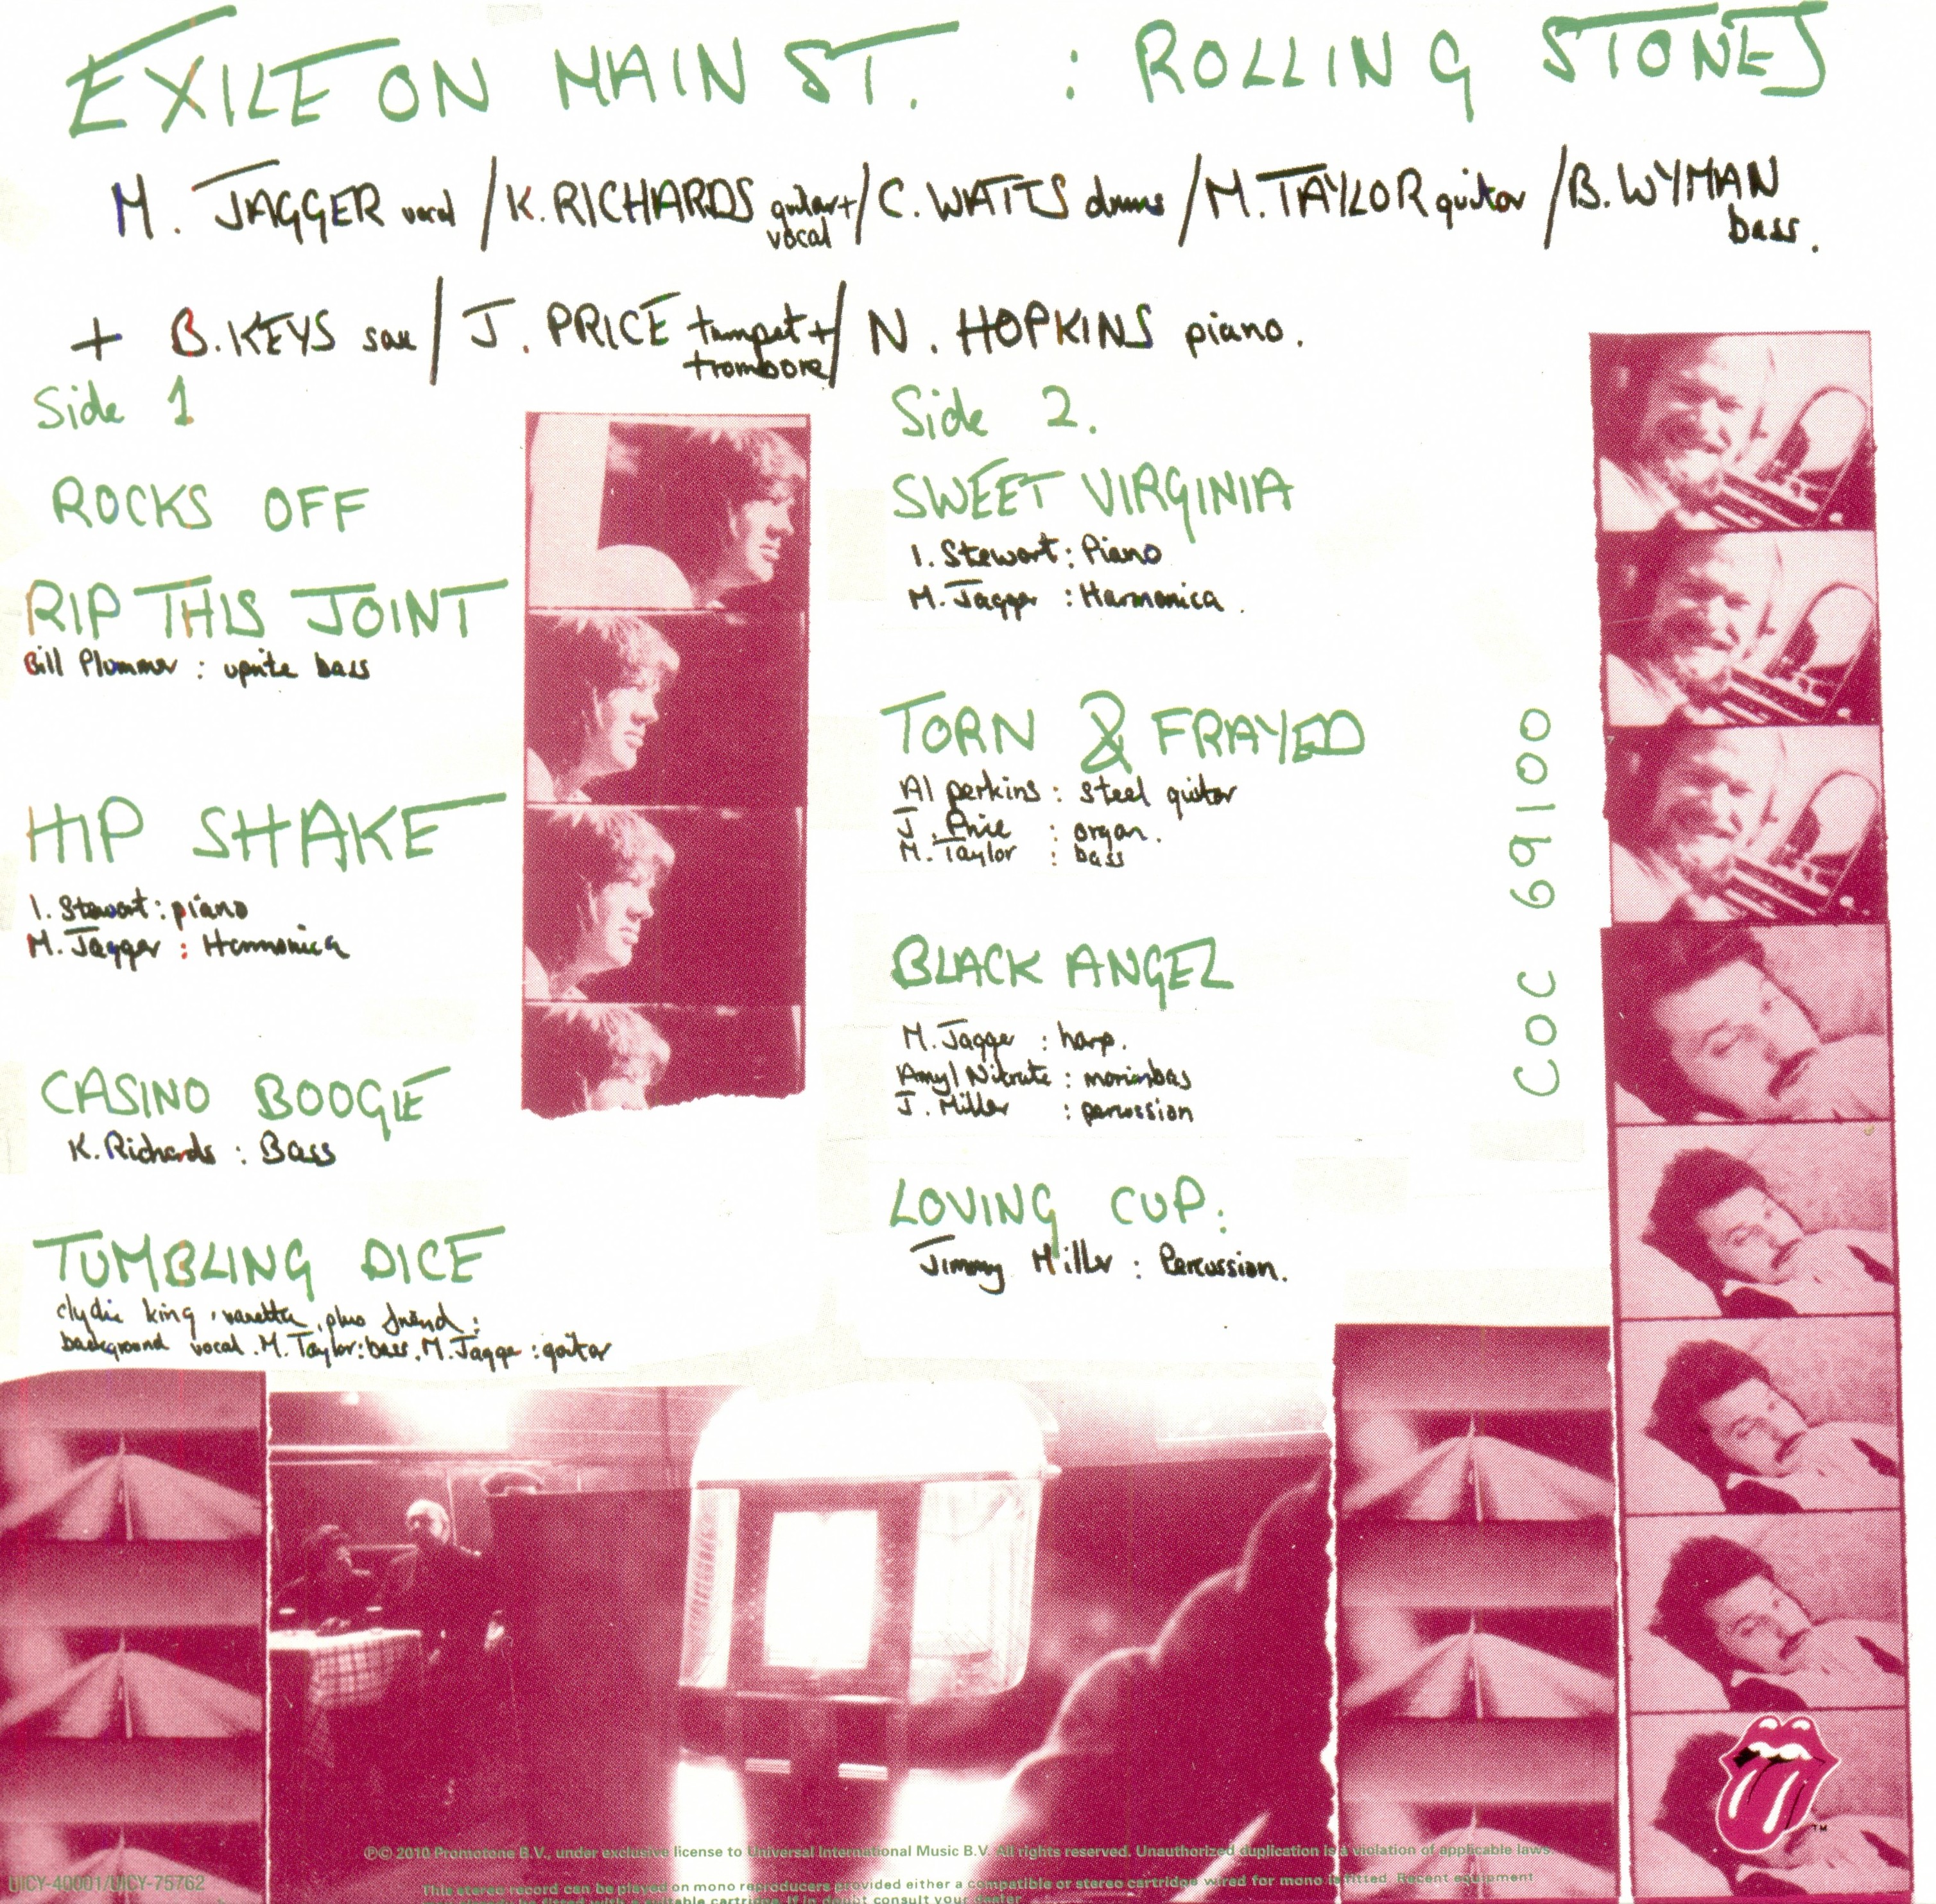 EXILE ON MAIN ST. : ROLLING STONES
M. JAGGER vocal / K. RICHARDS guitar + vocal / C. WATTS drums / M. TAYLOR guitar / B. WYMAN bass.
+ B. KEYS sax / J. PRICE trumpet + trombone / N. HOPKINS piano.
Side 1
ROCKS OFF
RIP THIS JOINT
Bill Plummer : uprite bass
HIP SHAKE
I. Stewart : piano
M. Jagger : Harmonica
CASINO BOOGIE
K. Richards : Bass
TUMBLING DICE
clydie king, vanetta, plus friend :
background vocal. M. Taylor : bass. M. Jagger : guitar
Side 2.
SWEET VIRGINIA
I. Stewart : Piano
M. Jagger : Harmonica.
TORN & FRAYED
Al perkins : steel guitar
J. Price : organ.
M. Taylor : bass
BLACK ANGEL
M. Jagger : harp.
Amyl Nitrate : marimbas
J. Miller : percussion
LOVING CUP.
Jimmy Miller : Percussion.
COC 69100
TM
℗© 2010 Promotone B.V., under exclusive license to Universal International Music B.V. All rights reserved. Unauthorized duplication is a violation of applicable laws.
UICY-40001/UICY-75762
This stereo record can be played on mono reproducers provided either a compatible or stereo cartridge wired for mono is fitted. Recent equipment
cartridge. If in doubt consult your dealer